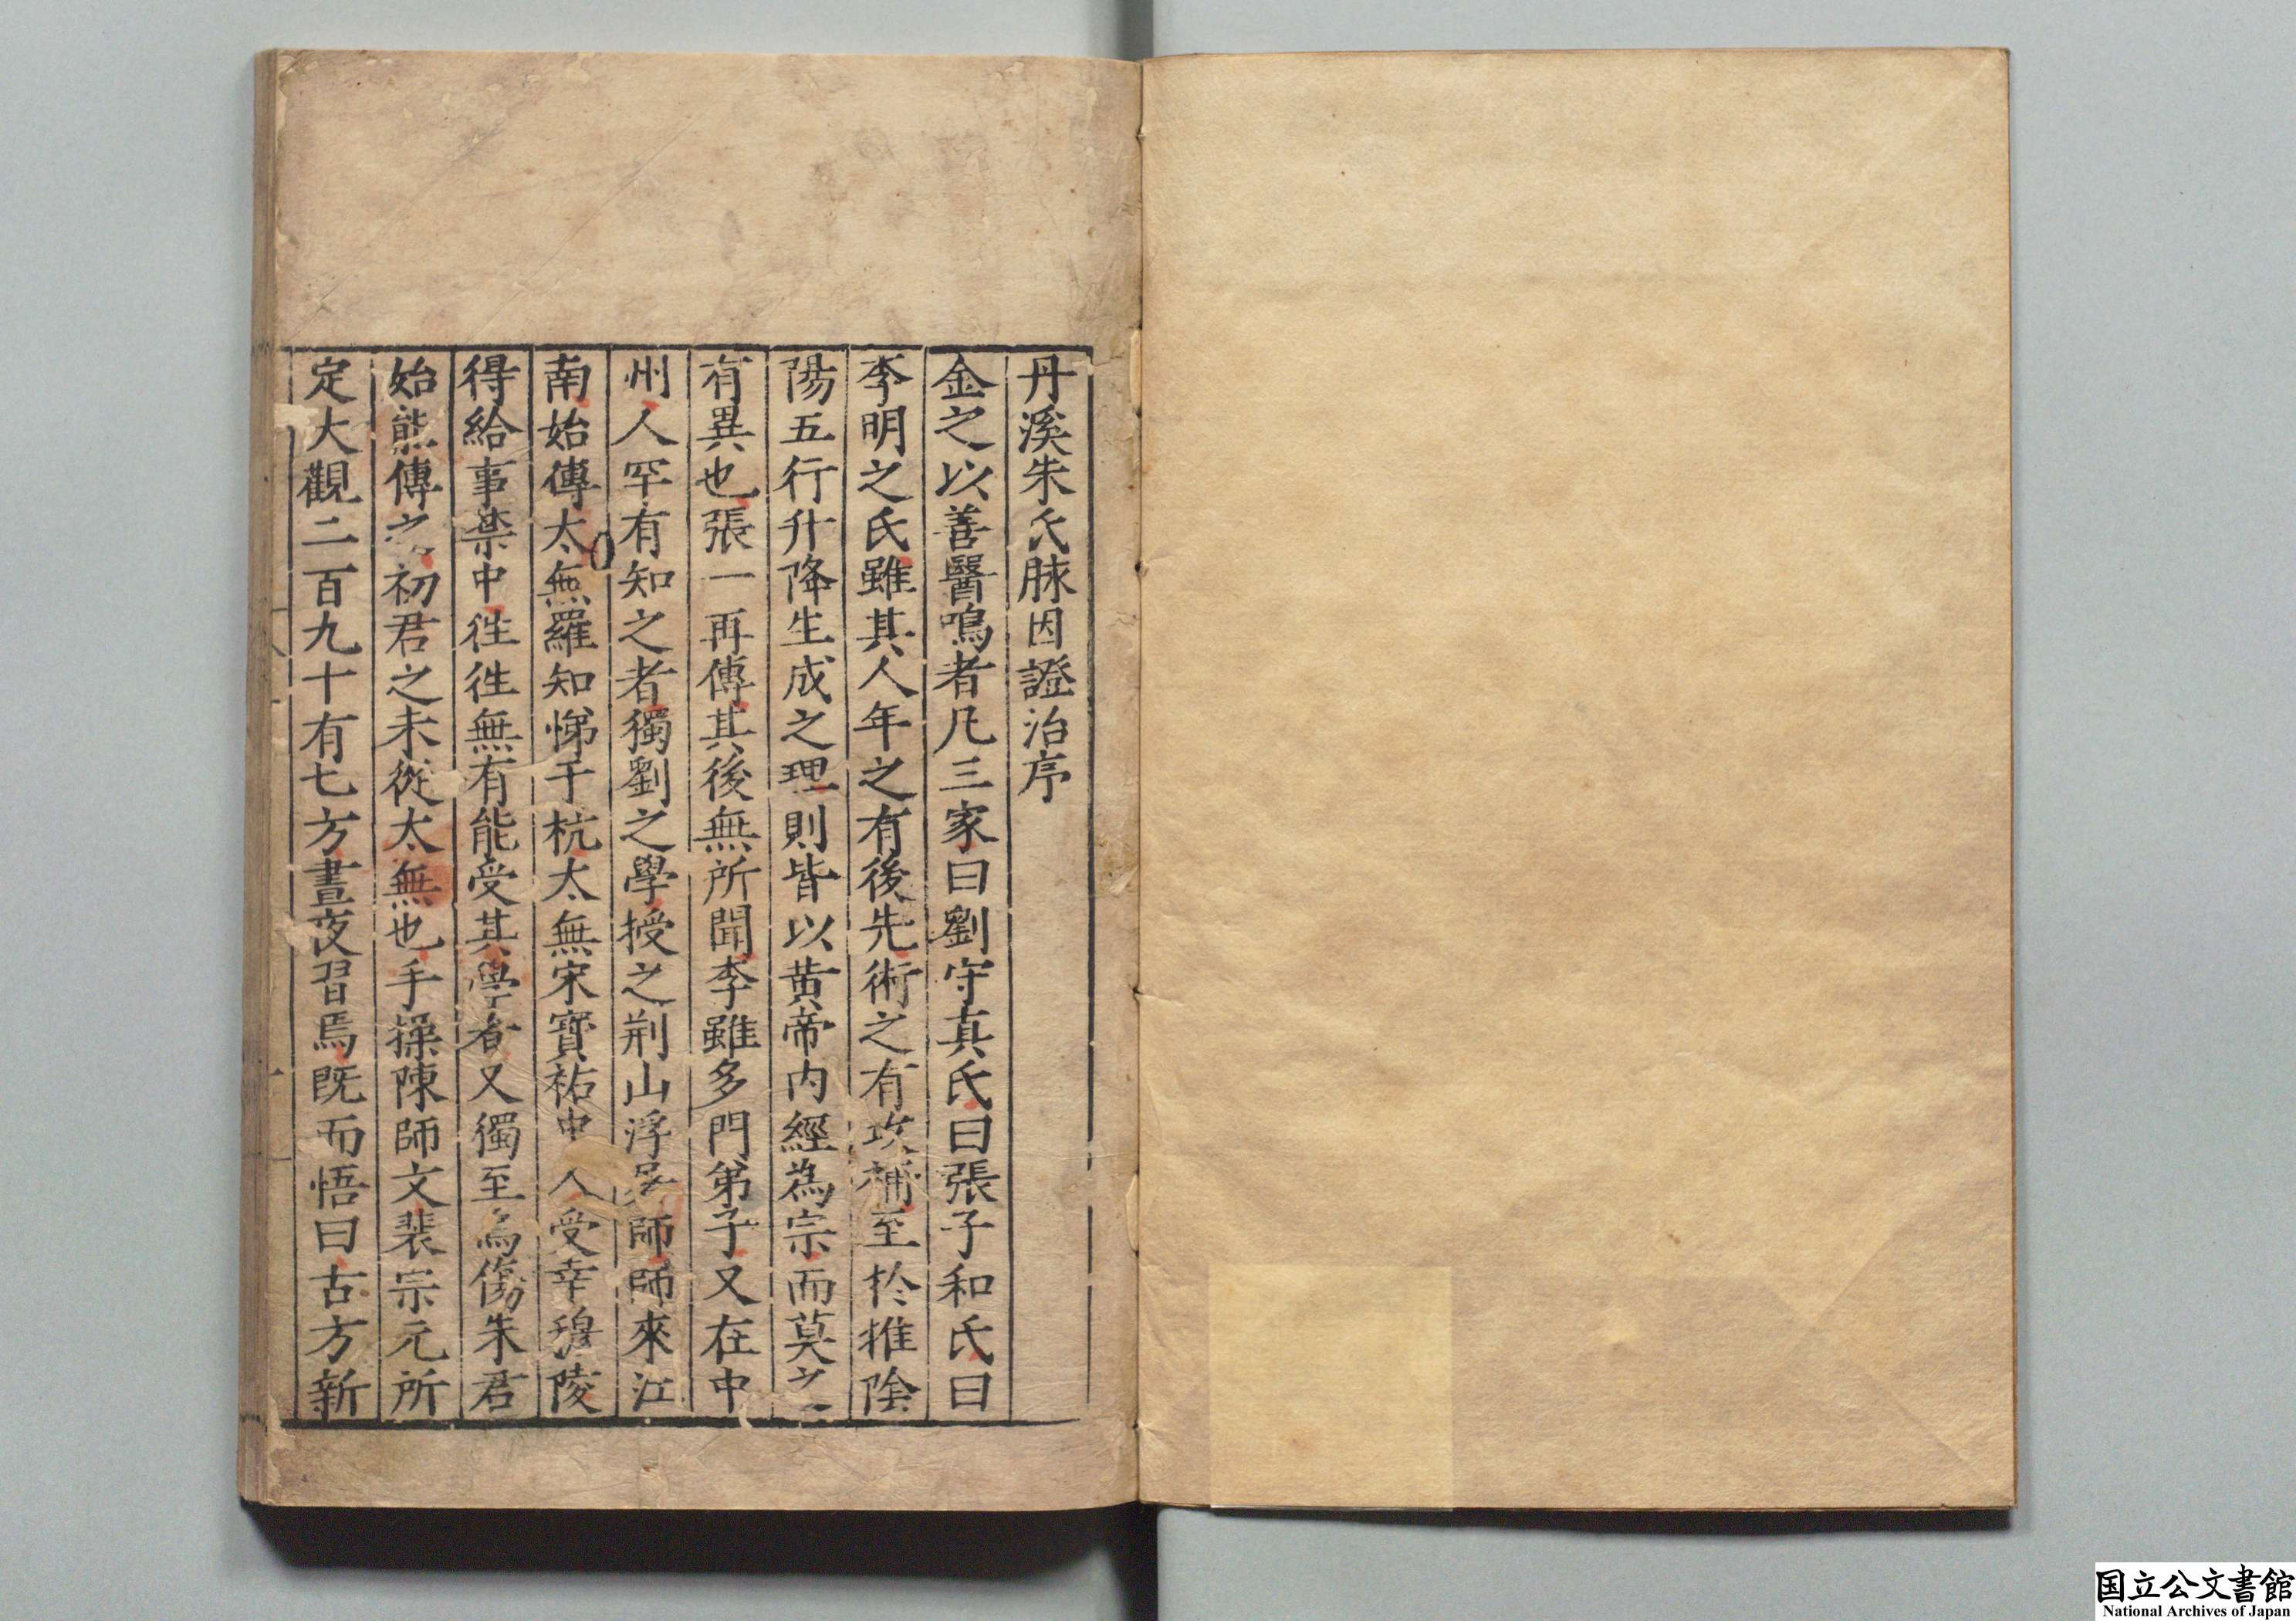 丹溪朱氏脉因證治序
金之以善醫鳴者凡三家曰劉守真氏曰張子和氏曰
李明之氏雖其人年之有後先術之有攻補至於推陰
陽五行升降生成之理則皆以黄帝内經為宗而莫之
有異也張一再傳其後無所聞李雖多門弟子又在中
州人罕有知之者獨劉之學授之荆山浮屠師師來江
南始傳太無羅知悌于杭太無宋寳祐中人受幸穆陵
得給事禁中徃徃無有能受其學者又獨至烏傷朱君
始能傳之初君之未從太無也手操陳師文裴宗元所
定大觀二百九十有七方晝夜習焉既而悟曰古方新
国立公文書館
National Archives of Japan